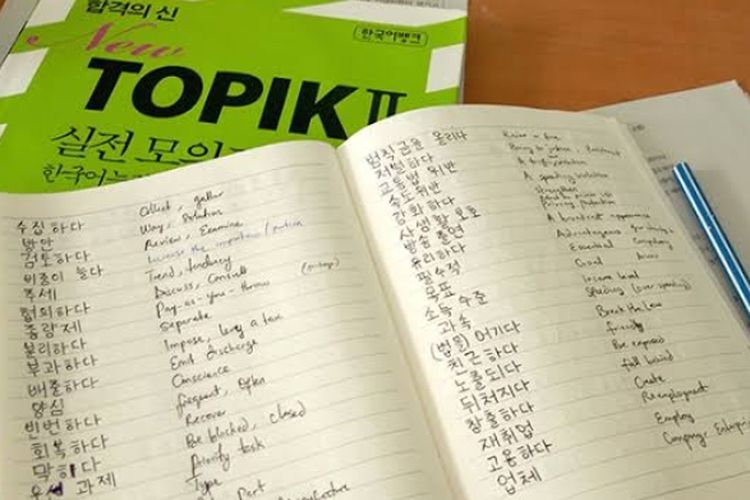 합격의 신
New
한국어뱅크
TOPIK II
실전 모의
수집하다 Collect, gather
방안 Way, Solution
검토하다 Review, Examine
비중이 높다 Increase the importance /
추세 Trend, tendency
협의하다 Discuss, Consult
종량제 Pay-as-you-throw (garbage)
분리하다 Separate
부과하다 Impose, levy a tax
배출하다 Emit discharge
양심 Conscience
빈번하다 frequent, often
회복하다 Recover
막히다 Be blocked, closed
우선 과제 Priority task
Type
Part
벌칙금을 올리다 Raise a fine
저벌하다 Bring to justice,
교통법 위반 A
속도위반 A speeding violation
강화하다 Strengthen
사생활 보호
방송 출연 A broadcast appearance
유리하다 Advantageous
필수적 Essential Compulsory
목표 Goal
소득 수준 Income level
과속 Speeding (over speeding)
(법을) 어기다 Break the Law
친근하다 friendly
노출되다 Be exposed
뒤처지다 fall behind
창출하다 Create
재취업 Reemployment
고용하다 Employ
업체 Company, Enterprise